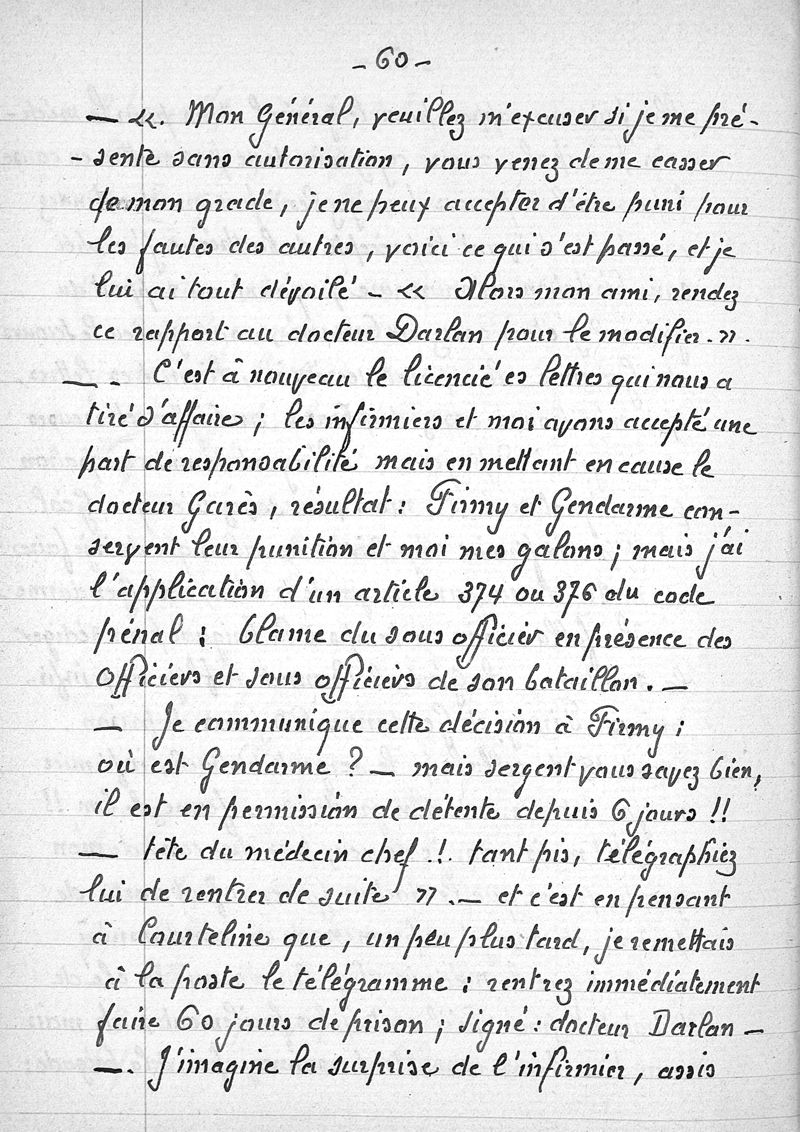 - 60 -
— «. Mon Général, veuillez m'excuser si je me pré-
- sente sans autorisation, vous venez de me casser
de mon grade, je ne peux accepter d'être puni pour
les fautes des autres, voici ce qui s'est passé, et je
lui ai tout dévoilé - « Alors mon ami, rendez
ce rapport au docteur Darlan pour le modifier. ».
— - C'est à nouveau le licencié es lettres qui nous a
tiré d'affaire ; les infirmiers et moi avons accepté une
part de responsabilité mais en mettant en cause le
docteur Garès, résultat : Firmy et Gendarme con-
servent leur punition et moi mes galons ; mais j'ai
l'application d'un article 374 ou 376 du code
pénal : blame du sous officier en présence des
officiers et sous officiers de son bataillon. —
— Je communique cette décision à Firmy ;
où est Gendarme ? — mais sergent vous savez bien,
il est en permission de détente depuis 6 jours !!
— tête du médecin chef.!. tant pis, télégraphiez
lui de rentrer de suite ». — et c'est en pensant
à Courteline que, un peu plus tard, je remettais
à la poste le télégramme : rentrez immédiatement
faire 60 jours de prison ; signé : docteur Darlan —
—. J'imagine la surprise de l'infirmier, assis